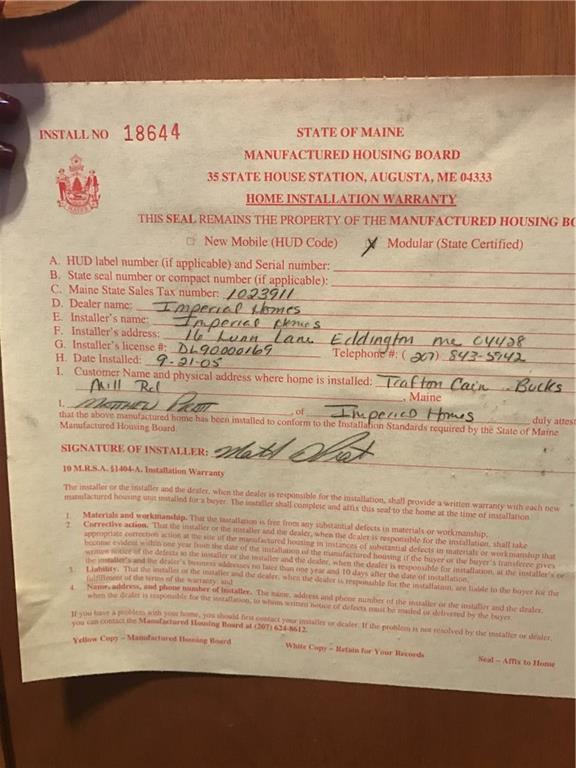 INSTALL NO 18644
STATE OF MAINE
MANUFACTURED HOUSING BOARD
35 STATE HOUSE STATION, AUGUSTA, ME 04333
HOME INSTALLATION WARRANTY
THIS SEAL REMAINS THE PROPERTY OF THE MANUFACTURED HOUSING BO
New Mobile (HUD Code) X Modular (State Certified)
A. HUD label number (if applicable) and Serial number:
B. State seal number or compact number (if applicable):
C. Maine State Sales Tax number: 1023911
D. Dealer name: Imperial Homes
E. Installer's name: Imperial Homes
F. Installer's address: 16 Lane Eddington me 04428
G. Installer's license #: DL90000169 Telephone #: (207) 843-5942
H. Date Installed: 9-21-05
I. Customer Name and physical address where home is installed: Trafton Cain Bucks
Mill Rd , Maine
I. Matthew , of Imperial Homes duly attest
that the above manufactured home has been installed to conform to the Installation Standards required by the State of Maine
Manufactured Housing Board.
SIGNATURE OF INSTALLER:
10 M.R.S.A. §1404-A. Installation Warranty
The installer or the installer and the dealer, when the dealer is responsible for the installation, shall provide a written warranty with each new
manufactured housing unit installed for a buyer. The installer shall complete and affix this seal to the home at the time of installation.
1. Materials and workmanship. That the installation is free from any substantial defects in materials or workmanship.
2. Corrective action. That the installer or the installer and the dealer, when the dealer is responsible for the installation, shall take
appropriate corrective action at the site of the manufactured housing in instances of substantial defects in materials or workmanship that
become evident within one year from the date of the installation of the manufactured housing if the buyer or the buyer's transferee gives
written notice of the defects to the installer or the installer and the dealer, when the dealer is responsible for installation, at the installer's or
the installer's and the dealer's business addresses no later than one year and 10 days after the date of installation.
3. Liability. That the installer or the installer and the dealer, when the dealer is responsible for the installation, are liable to the buyer for the
fulfillment of the terms of the warranty; and
4. Name, address, and phone number of installer. The name, address and phone number of the installer or the installer and the dealer,
when the dealer is responsible for the installation, to whom written notice of defects must be mailed or delivered by the buyer.
If you have a problem with your home, you should first contact your installer or dealer. If the problem is not resolved by the installer or dealer,
you can contact the Manufactured Housing Board at (207) 624-8612.
Yellow Copy – Manufactured Housing Board White Copy – Retain for Your Records Seal – Affix to Home